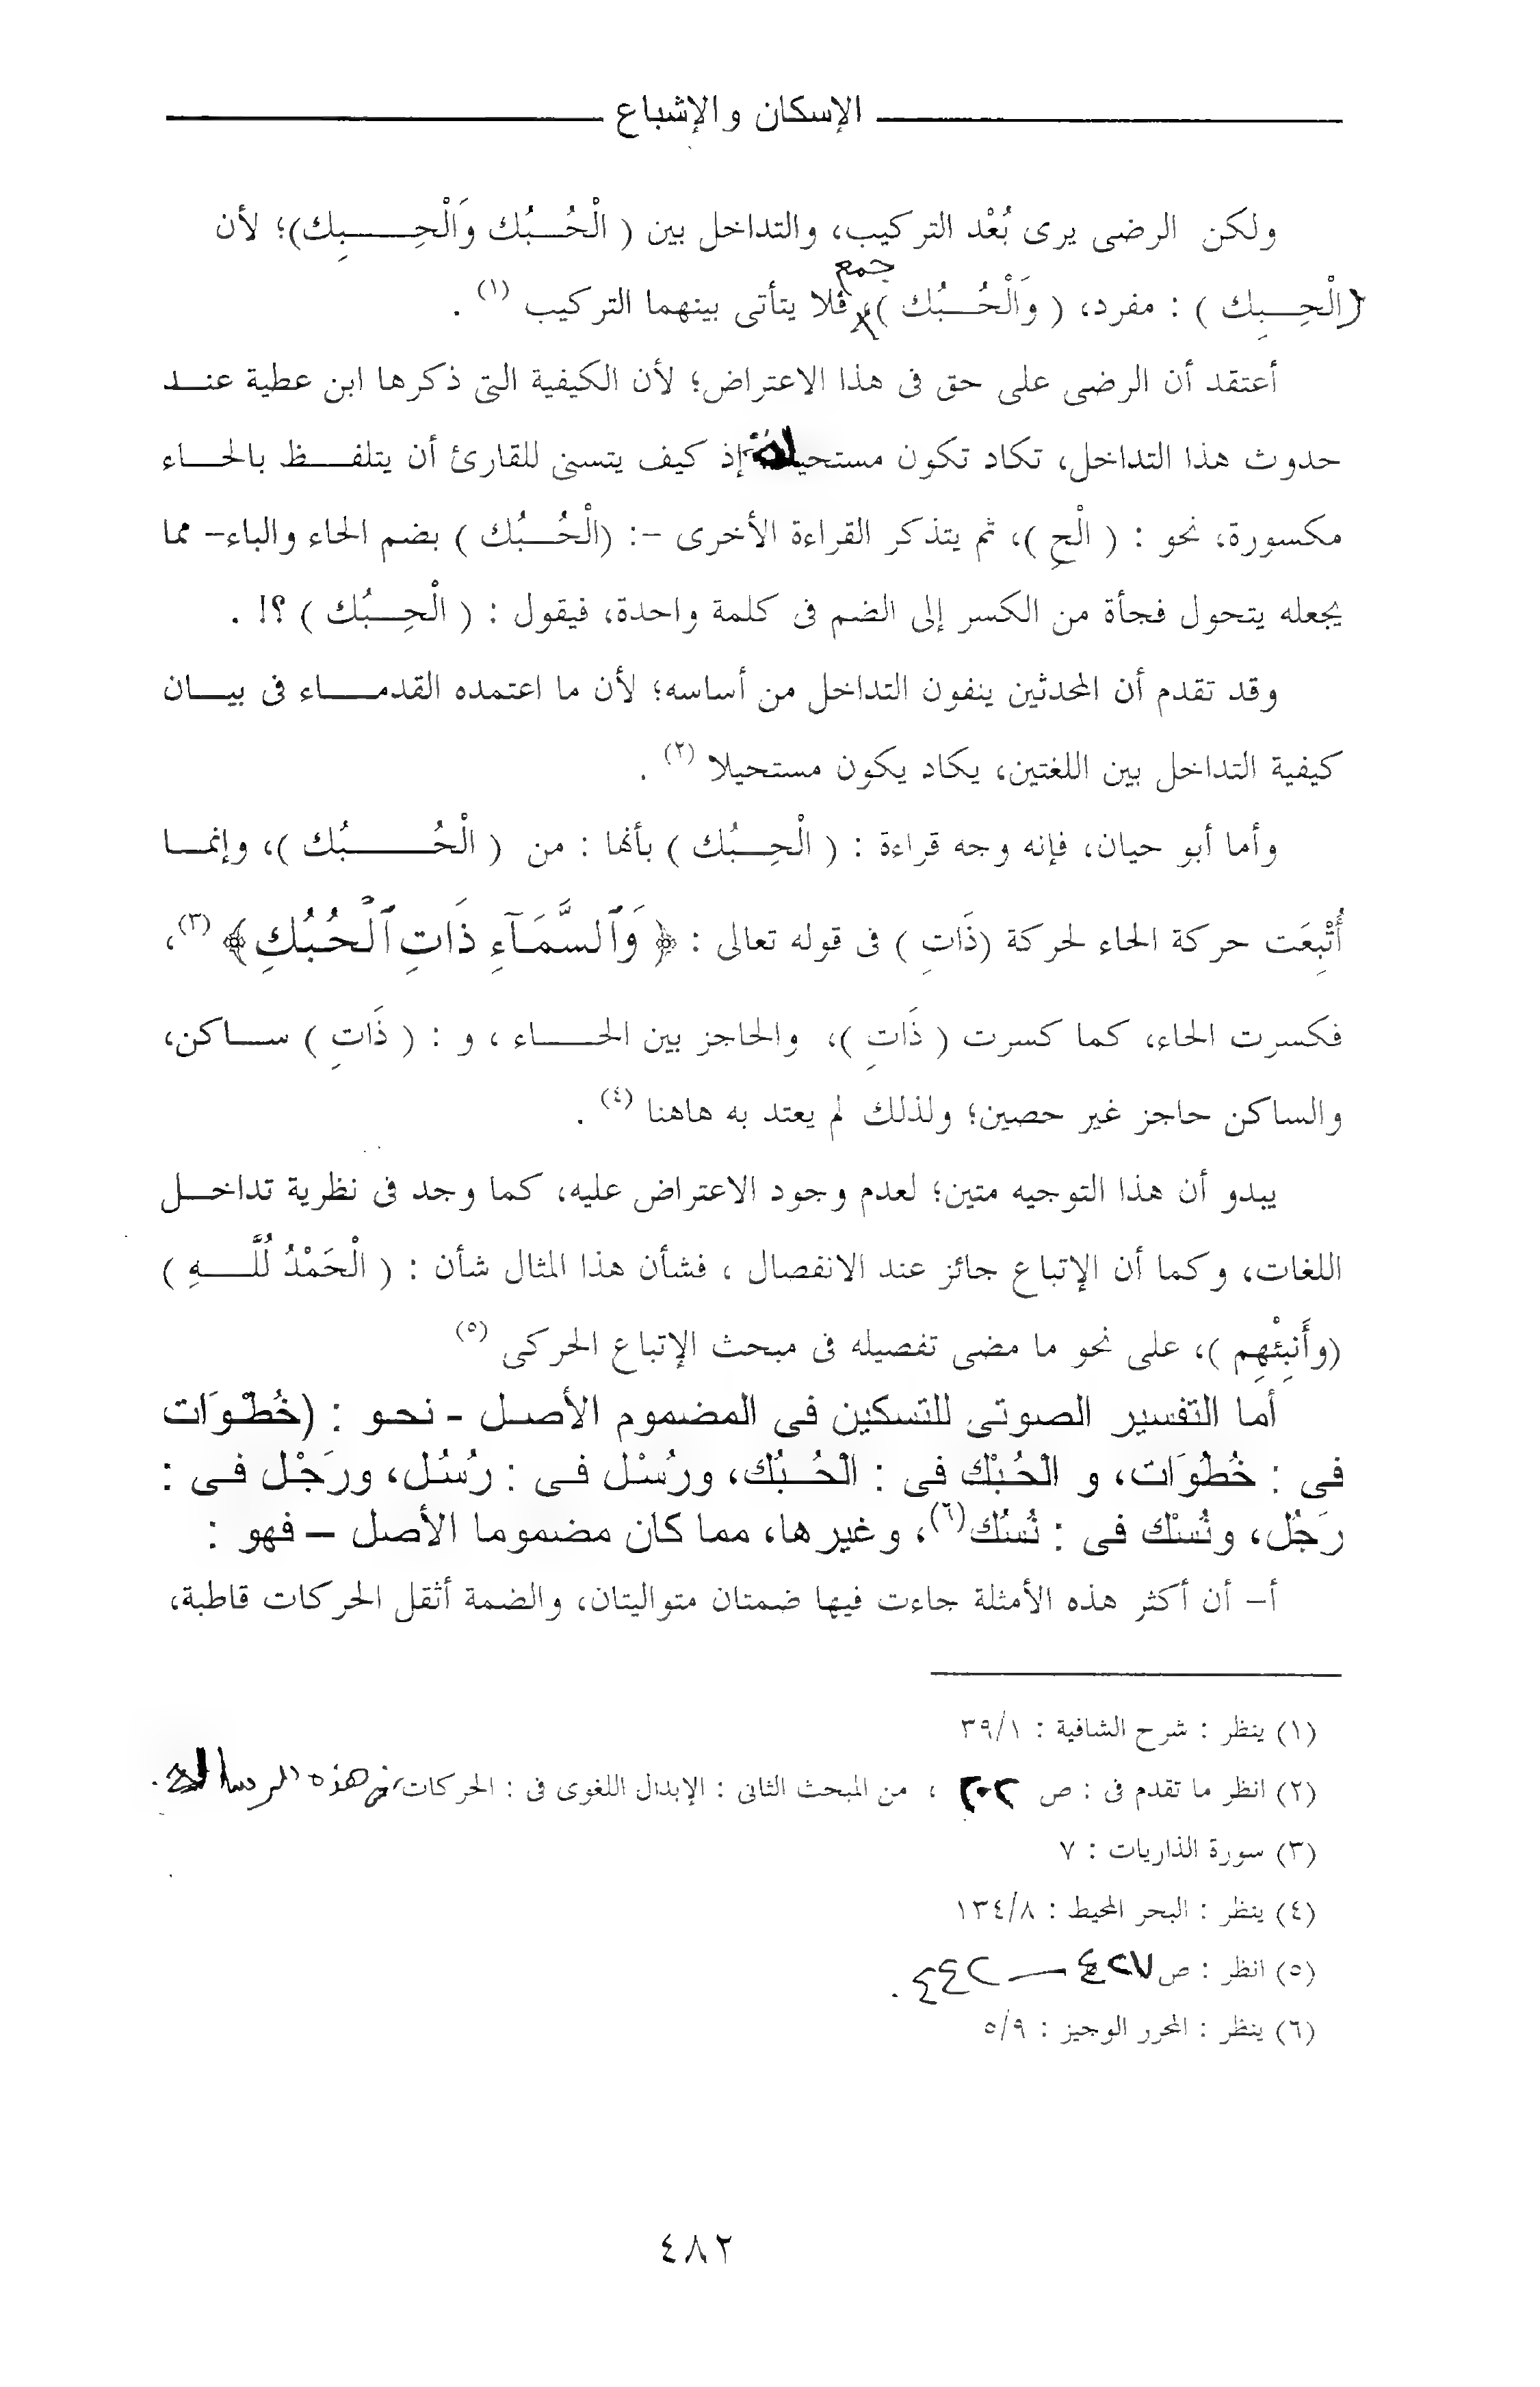 الإسكان والإشباع
ولكن الرضى يرى بُعْد التركيب، والتداخل بين ( الْحُبُك وَالْحِبِك)؛ لأن
(الْحِبِك ) : مفرد، ( وَالْحُبُك )، جمع فلا يتأتى بينهما التركيب (١) .
أعتقد أن الرضى على حق فى هذا الاعتراض؛ لأن الكيفية التى ذكرها ابن عطية عند
حدوث هذا التداخل، تكاد تكون مستحيلة، إذ كيف يتسنى للقارئ أن يتلفظ بالحاء
مكسورة، نحو : ( الْحِ )، ثم يتذكر القراءة الأخرى -: (الْحُبُك ) بضم الحاء والباء- مما
يجعله يتحول فجأة من الكسر إلى الضم فى كلمة واحدة، فيقول : ( الْحِبُك ) ؟! .
وقد تقدم أن المحدثين ينفون التداخل من أساسه؛ لأن ما اعتمده القدماء فى بيان
كيفية التداخل بين اللغتين، يكاد يكون مستحيلا (٢) .
وأما أبو حيان، فإنه وجه قراءة : ( الْحِبُك ) بأنها : من ( الْحُبُك )، وإنما
أُتْبِعَت حركة الحاء لحركة (ذَاتِ ) فى قوله تعالى : ﴿ وَٱلسَّمَآءِ ذَاتِ ٱلْحُبُكِ ﴾ (٣)،
فكسرت الحاء، كما كسرت ( ذَاتِ )، والحاجز بين الحاء ، و : ( ذَاتِ ) ساكن،
والساكن حاجز غير حصين؛ ولذلك لم يعتد به هاهنا (٤) .
يبدو أن هذا التوجيه متين؛ لعدم وجود الاعتراض عليه، كما وجد فى نظرية تداخل
اللغات، وكما أن الإتباع جائز عند الانفصال ، فشأن هذا المثال شأن : ( الْحَمْدُ لُلَّهِ )
(وأَنبِئْهِم )، على نحو ما مضى تفصيله فى مبحث الإتباع الحركى (٥)
أما التفسير الصوتى للتسكين فى المضموم الأصل - نحو : (خُطْوَات
فى : خُطُوَات، و الْحُبْك فى : الْحُبُك، ورُسْل فى : رُسُل، ورَجْل فى :
رَجُل، ونُسْك فى : نُسُك(٦)، وغيرها، مما كان مضموما الأصل – فهو :
أ- أن أكثر هذه الأمثلة جاءت فيها ضمتان متواليتان، والضمة أثقل الحركات قاطبة،
(١) ينظر : شرح الشافية : ٣٩/١
(٢) انظر ما تقدم فى : ص ٢٠٢ ، من المبحث الثانى : الإبدال اللغوى فى : الحركات، من هذه الرسالة .
(٣) سورة الذاريات : ٧
(٤) ينظر : البحر المحيط : ١٣٤/٨
(٥) انظر : ص ٤٢٧ — ٤٤٢ .
(٦) ينظر : المحرر الوجيز : ٥/٩
٤٨٢